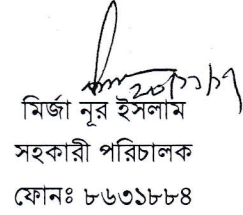 মির্জা নূর ইসলাম
সহকারী পরিচালক
ফোনঃ ৮৬৩১৮৮৪